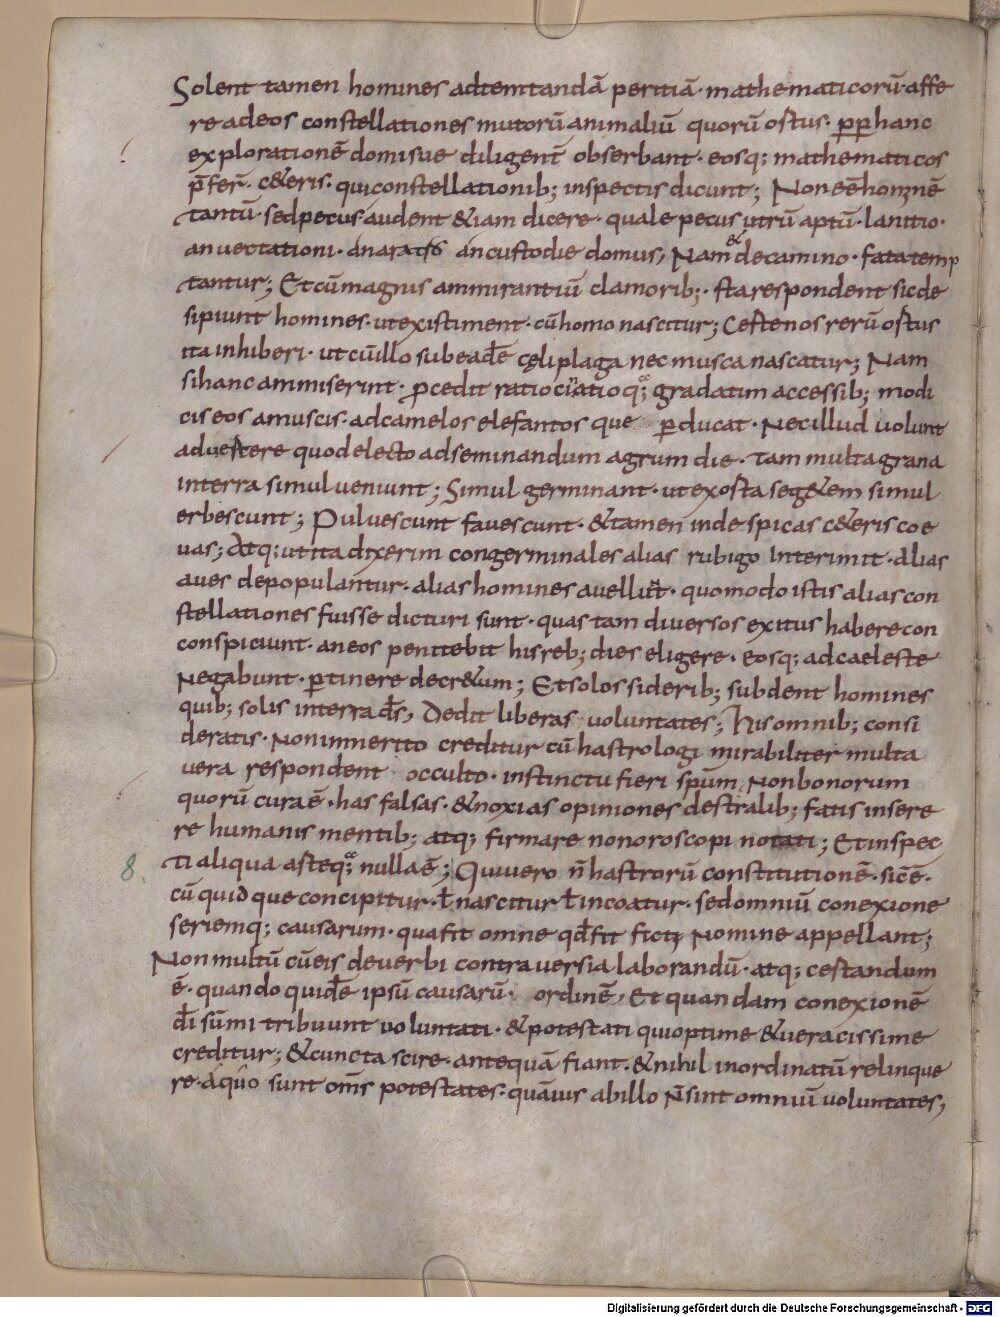 Solent tamen homines adtemtandā peritiā· mathematicorū· affe
re adeos constellationes mutorū animaliū quorū ostus· ꝓꝑ hanc
explorationē domisue diligenť obserbant· eosq; mathematicos
p̄feř· c&eris· qui constellationib; inspectis dicunt; Non eē hominē
tantū· sed pecus· audent &iam dicere· quale pecus utrū aptū· lanitio·
an uectationi· an aratris an custodie domus, Nam & decamino· fata temp
tantur; Et cū magnis ammirantiū clamorib;· sta respondent sic de
sipiunt homines· ut existiment· cū homo nascitur; Ceftenos rerū ostus
ita inhiberi· ut cū illo sub eadē cęli plaga nec musca nascatur; Nam
si hanc ammiserint· ꝓcedit ratiociatio q; gradatim accessib; modi
cis eos amuscis· adcamelos elefantos que ꝑducat· Nec illud uolunt
aduestere quodelecto adseminandum agrum die· tam multa grana
interra simul ueniunt; Simul germinant· ut exosta seg&em simul
erbescunt; Puluescunt fauescunt· & tamen inde spicas c&eris coe
uas; Atq; ut ita dixerim congerminales alias rubigo interimit· alias
aues depopulantur· alias homines auellūt· quomodo istis alias con
stellationes fuisse dicturi sunt· quas tam diuersos exitus habere con
conspiciunt· an eos penitebit his reb; dies eligere· eosq; ad caeleste
Negabunt· ꝑtinere decr&um; Et solos siderib; subdent homines
quib; solis interra d̄s, Dedit liberas uoluntates; His omnib; consi
deratis· Non inmerito creditur cū hastrologi mirabiliter multa
vera respondent occulto· instinctu fieri spūm, Non bonorum
quorū cura ē· has falsas· & noxias opiniones destralib; fatis insere
re humanis mentib; atq; firmare non oroscopi notati; Et inspec
ti aliqua asteq; nulla ē; Qui uero n̄ hastrorū constitutionē· sic ē·
8.
cū quid que concipitur· ł nascitur ł incoatur· sed omniū conexione
seriemq; causarum· qua fit omne qđ fit ficti Nomine appellant;
Non multū cū eis deverbi contra uersia laborandū· atq; cestandum
ē· quando quidē ipsū causarū· ordinē, Et quandam conexionē
dī sūmi tribuunt uoluntati· & potestati qui optime & ueracissime
creditur; & cuncta scire· antequā fiant· & nihil inordinatū relinque
re· a quo sunt om̄s potestates· quāuis ab illo N̄ sint omniū uoluntates,
Digitalisierung gefördert durch die Deutsche Forschungsgemeinschaft - DFG